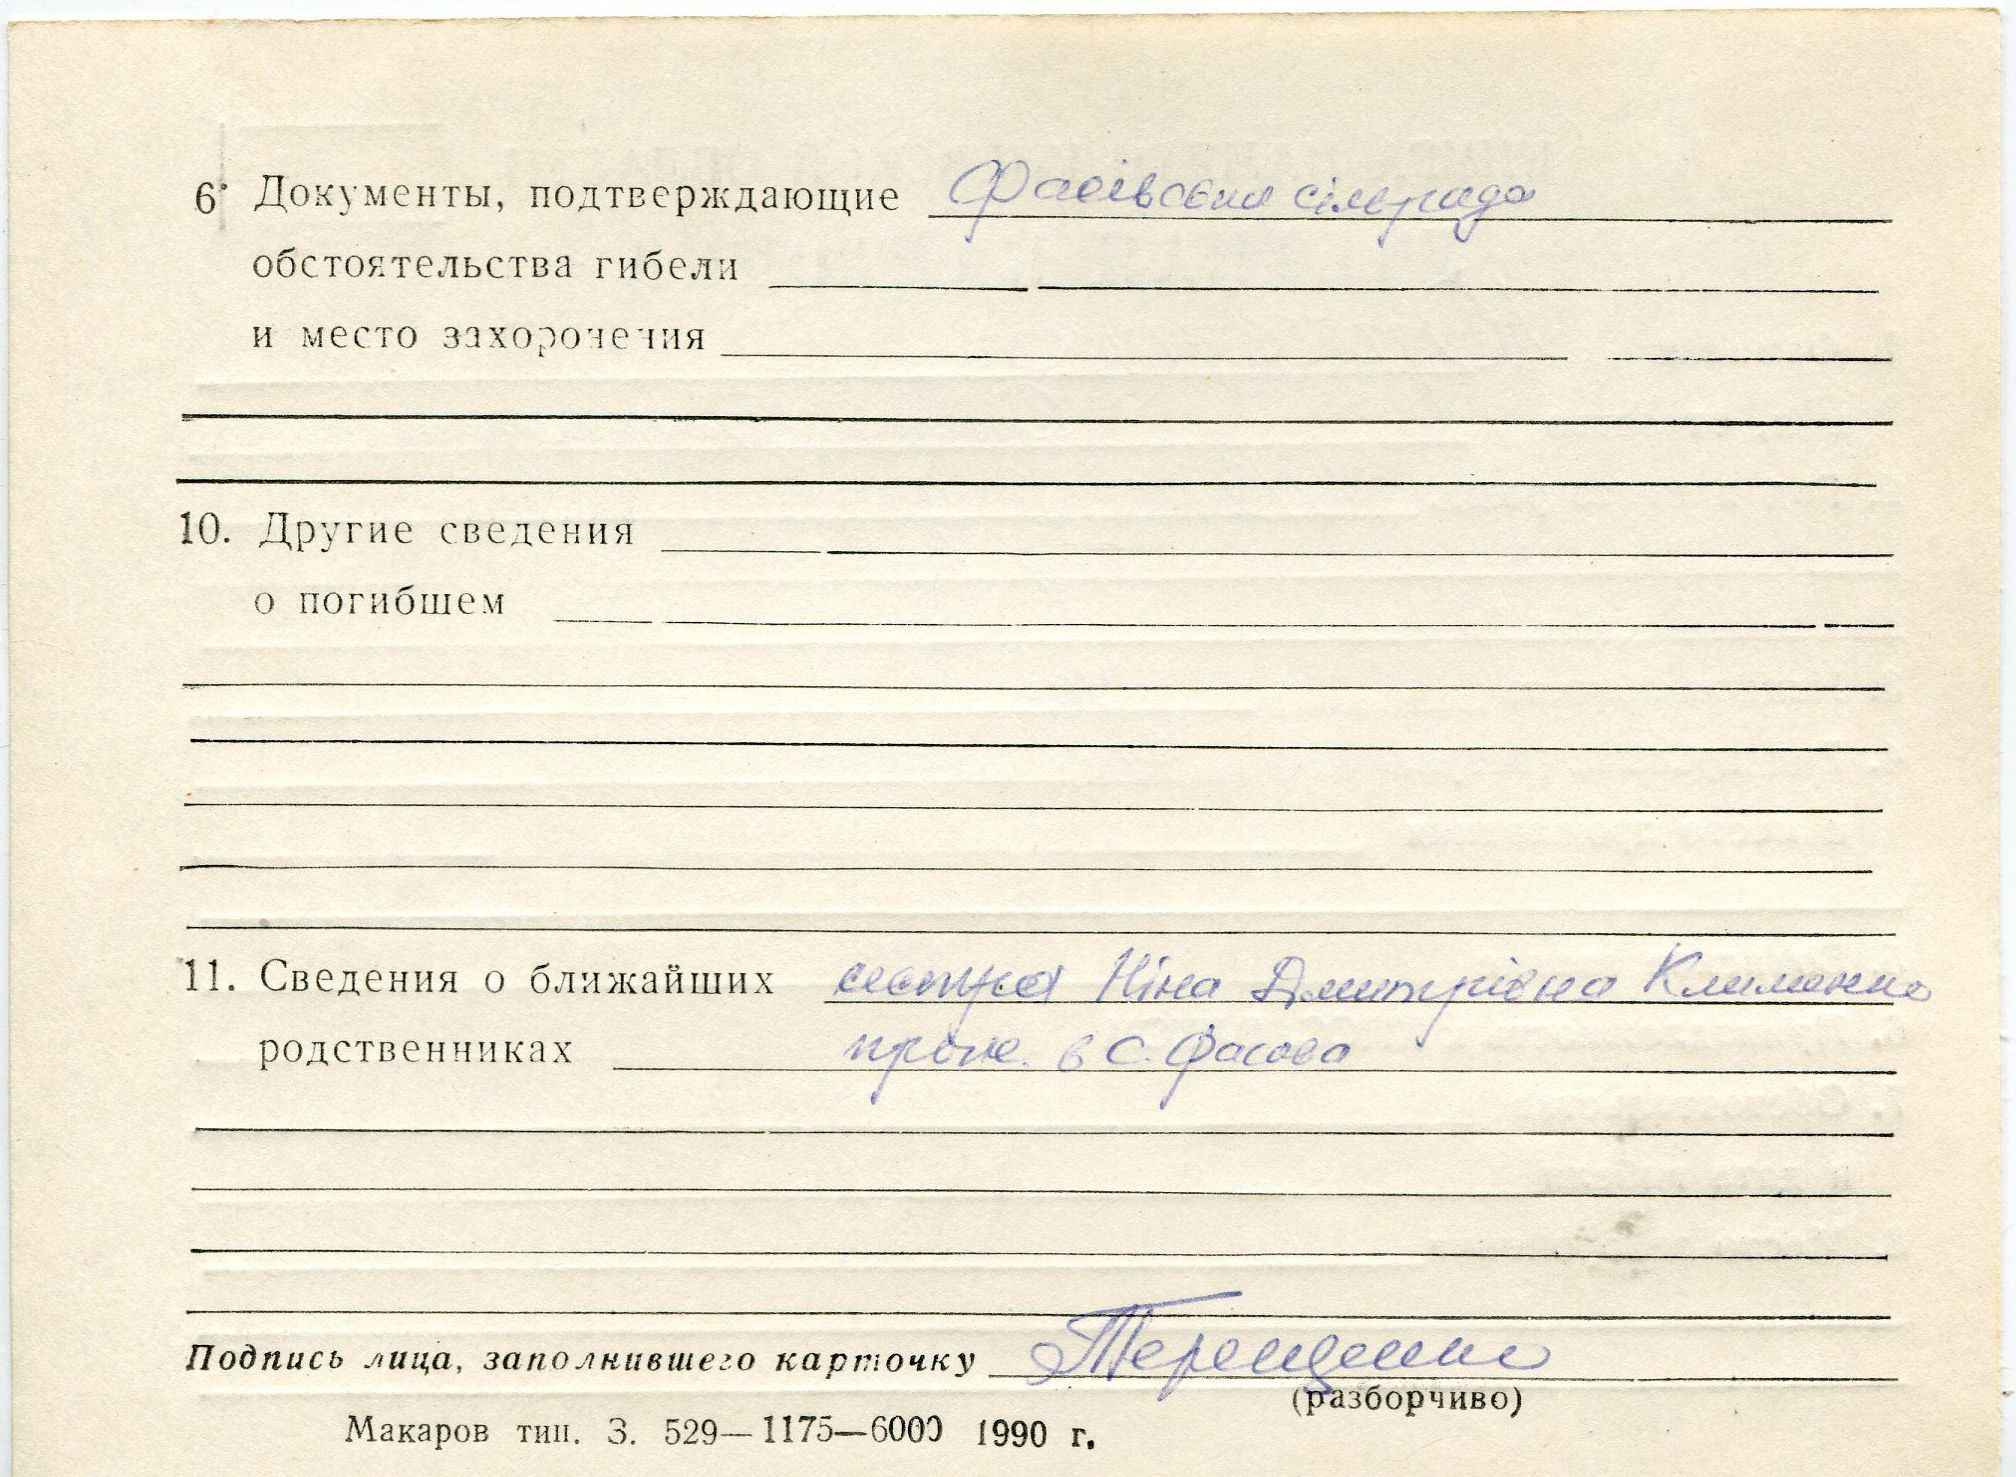 6. Документы, подтверждающие Фасівська сільрада
обстоятельства гибели
и место захоронения
10. Другие сведения
о погибшем
11. Сведения о ближайших сестра Ніна Дмитрівна Клименко
родственниках прож. в с. Фасова
Подпись лица, заполнившего карточку Терещенко
(разборчиво)
Макаров тип. З. 529—1175—6000 1990 г.